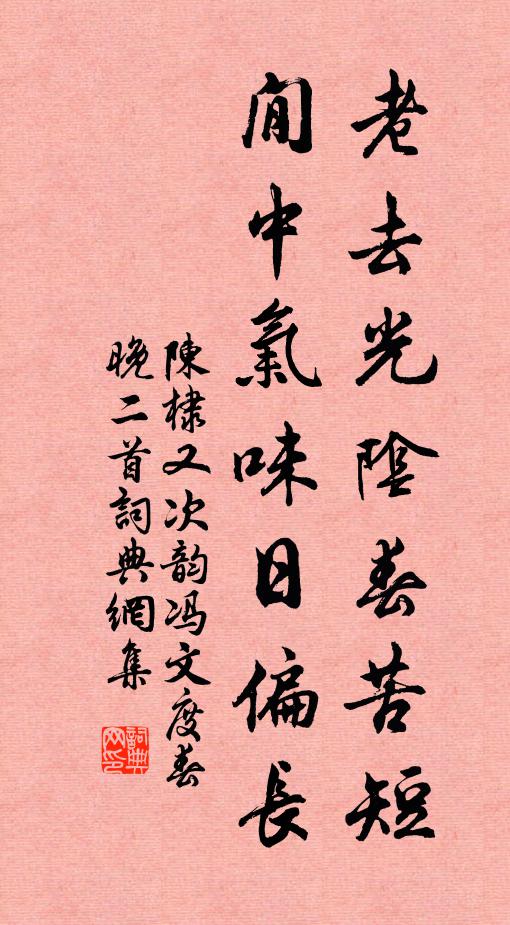 老去光陰春苦短
閒中氣味日偏長
陳棣又次韵冯文度春
晚二首詞典網集
詞典网印